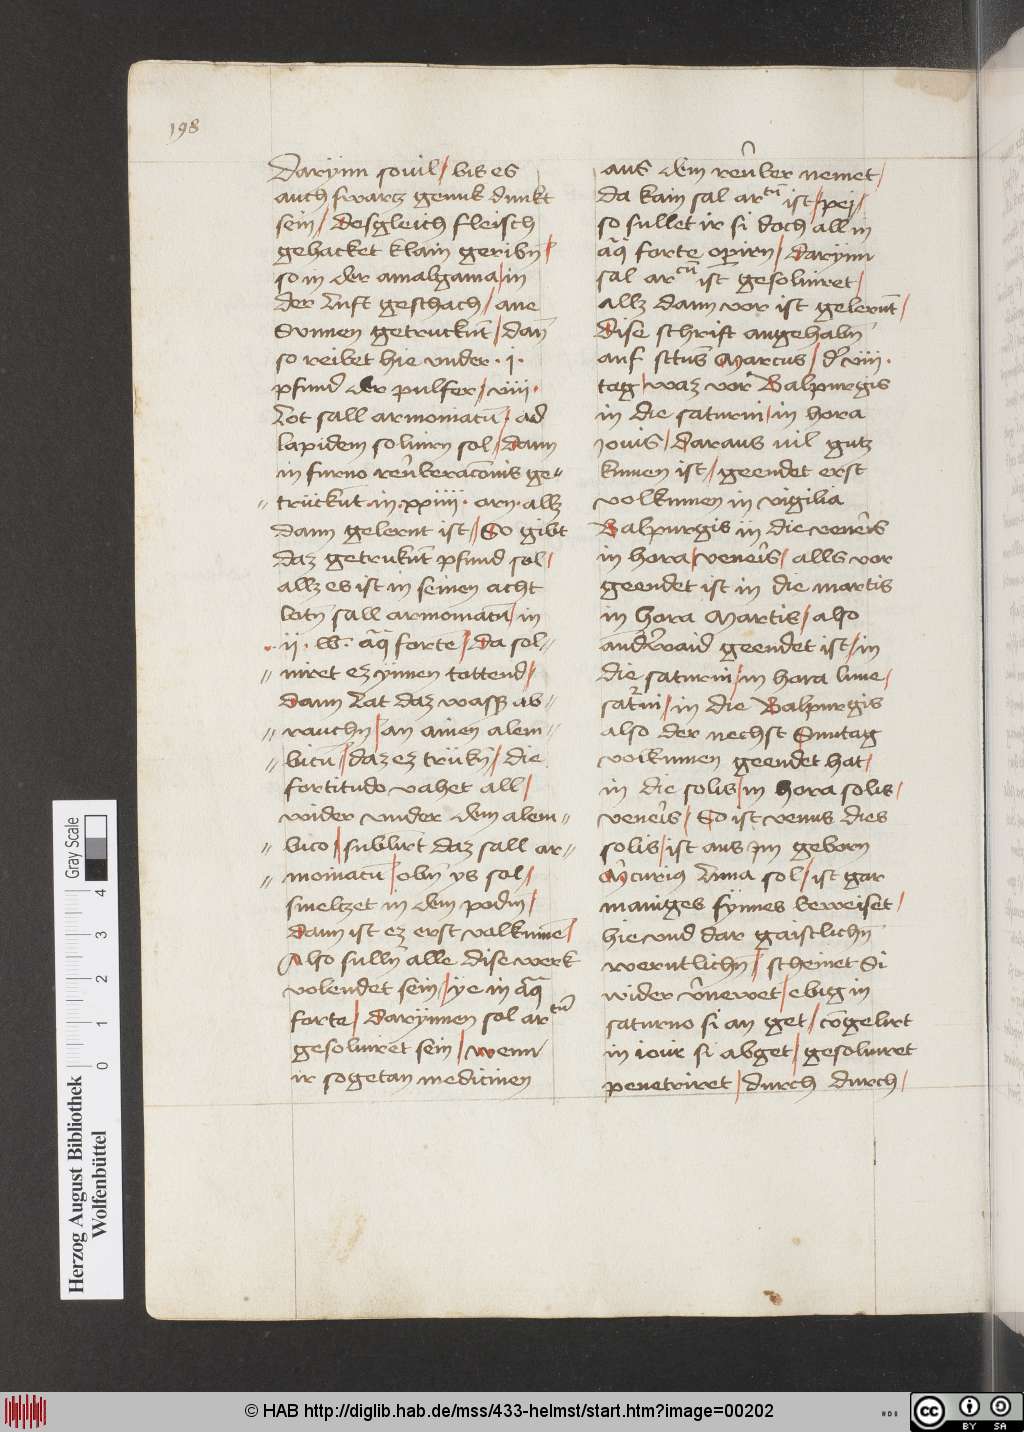 198
Darÿnn souil / bis es
auch swartz genuk dunkt
sein / desgleich fleisch
gehacket klain geribñ /
so in der amalgama / in
der Luft geschach / ane
Sunnen getrucknt / dañ
so reibet hie vnder · i ·
pfund der pulfer / viii ·
Lot sall armoniacū / ad
lapidem soluirn sol / dann
in furno reuberacōnis ge=
= trückent · in · xxiiii · orn · allz
dann gelernt ist / So gibt
daz getruknt pfund sol /
allz es ist in seinen acht
lotn sall armoniacū / in
ii · w · aq̄ forte / da sol=
= uiret ez ÿnnen tottend /
dann Lat daz wass ab=
= rauchn / an ainen alem=
= bicū / daz ez trükñ / die
fortitudo vahet all /
wider vnder dem alem=
= bico / sublirt daz sall ar=
= moniacū / obñ ys sol /
smeltzet in dem podm /
dann ist ez erst valkumē /
Also sullñ alle dise werk
volendet sein / ye in aq̄
forte / darÿnnen sol ar tū
gesoluiret sein / wenn
ir sogetan medicinen
aus dem reūber nemet /
da kain sal ar tū ist / pei /
so sullet ir si doch all in
aq̄ forte opirn / darÿnn
sal ar cū ist gesoluiret /
allz dann vor ist gelernt /
dise schrift angehabñ
auf sctus Marcus / dr̄ viii ·
tag / waz vor Balpurgis
in die saturni / in hora
Iouis / daraus uil gutz
kumen ist / geendet erst
volkumen in vigilia
Balpurgis in die veneris
in hora / veneris / alls vor
geendet ist in die martis
in hora Martis / also
anderwaid geendet ist / in
die saturni / in hora lune /
saturni / in die Balpurgis
also der nechst Sunntag
volkumen geendet hat /
in die solis / in hora solis /
veneris / So ist venus dies
solis / ist aus im geborn
Mcurius Luna sol / ist gar
maniges sÿnnes beweiset /
hie vnd dar gaistlichñ
werntlichñ / scheinet Si
wider v̄newet / ebig in
saturno si an get / cōgelirt
in iouir si abget / gesoluiret
penetriret / durch durch /
Herzog August Bibliothek
Wolfenbüttel
0 1 2 3 4
Gray Scale
© HAB http://diglib.hab.de/mss/433-helmst/start.htm?image=00202
HDB
cc BY SA